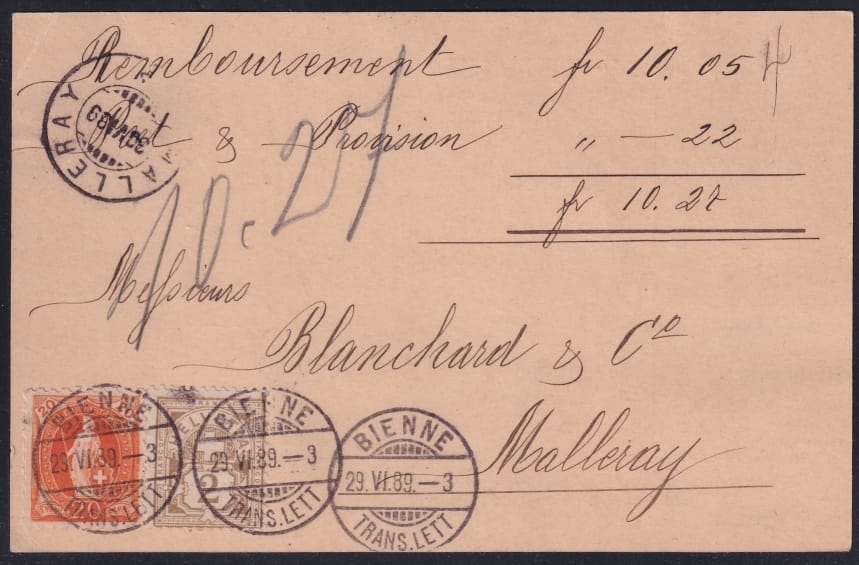 Remboursement fr 10.05 4
Port & Provision " — 22
fr 10.27
10.27
MALLERAY
Messieurs
Blanchard & Co
Malleray
20
BIENNE
29.VI.89.—3
TRANS.LETT
2
BIENNE
29.VI.89.—3
TRANS.LETT
BIENNE
29.VI.89.—3
TRANS.LETT